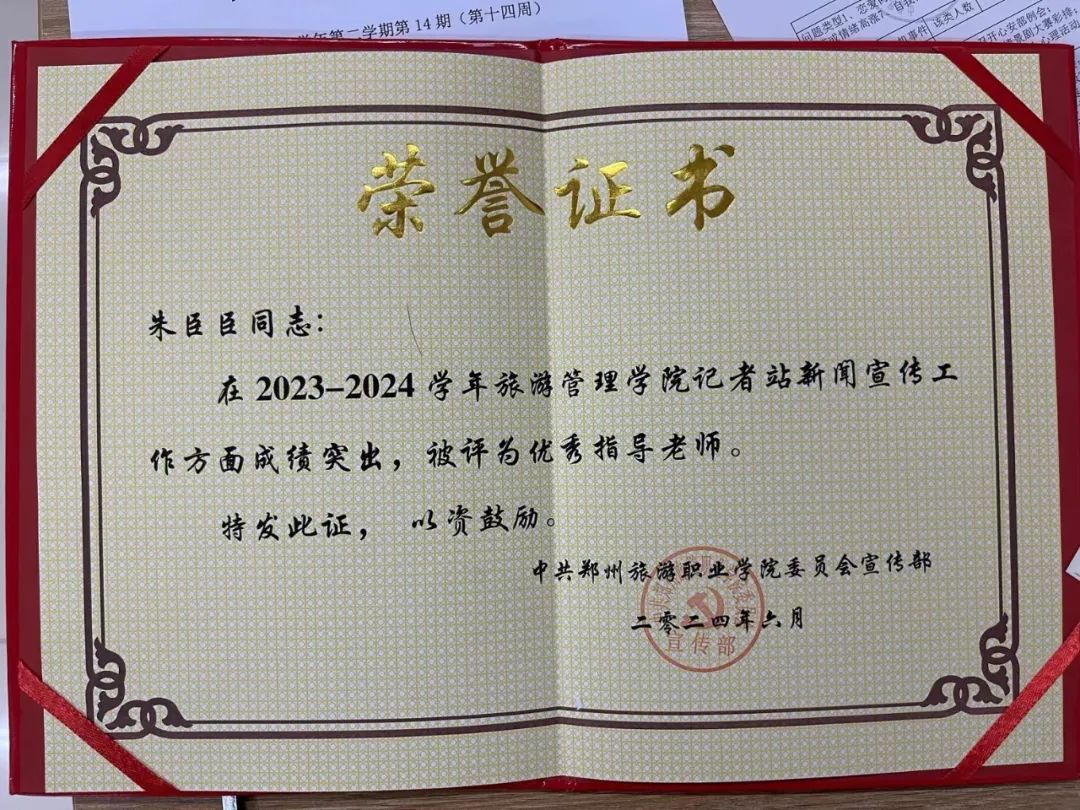 学年第二学期第 14 期（第十四周）
荣誉证书
朱臣臣同志：
在 2023–2024 学年旅游管理学院记者站新闻宣传工
作方面成绩突出，被评为优秀指导老师。
特发此证， 以资鼓励。
中共郑州旅游职业学院委员会宣传部
二零二四年六月
宣传部